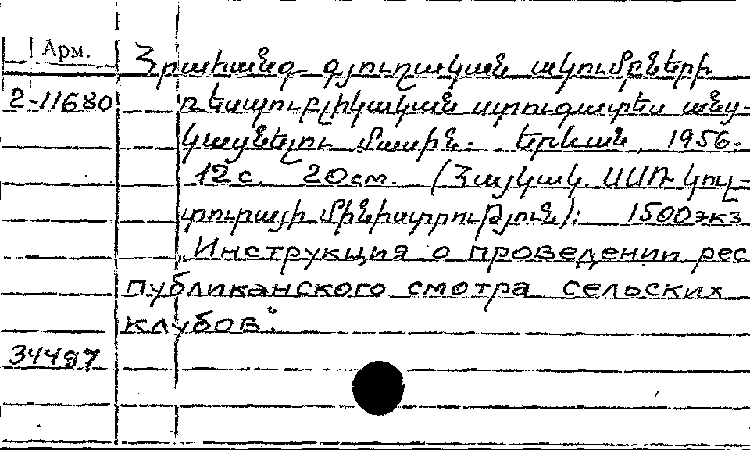 Арм.
Հրահանգ գյուղական ակումբների
2-11680 ռեսպուբլիկական ստուգատես անց
կացնելու մասին. Երևան, 1956.
12 с. 20 см. (Հայկակ. ՍՍՌ կուլ-
տուրայի մինիստրություն): 1500 экз
„Инструкция о проведении рес
публиканского смотра сельских
клубов“.
34487